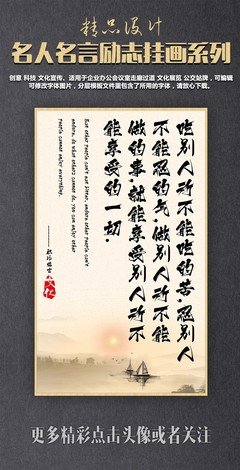 精品设计
名人名言励志挂画系列
创意 科技 文化宣传、适用于企业办公会议室走廊过道 文化展览 公交站牌，可编辑
可修改字体图片，分层模板文件里包含了所用的字体，请放心下载。
吃别人所不能吃的苦,忍别人
不能忍的气,做别人所不能
做的事,就能享受别人所不
能享受的一切.
people cannot enjoy everything.
更多精彩点击头像或者关注